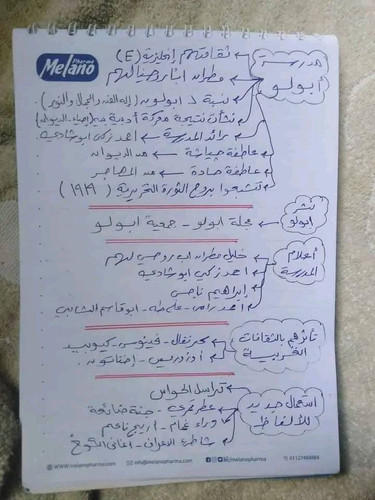 Pharma
Melano
مدرسة
أبولو
ثقافتهم إنجليزية (E)
مطران أبا روحيا لهم
نسبة لـ ابولون (إله الفن والجمال والنور)
نشأة نتيجة معركة أدبية بين (إحياء، الديوان)
رائد المدرسة ← احمد زكي ابو شادي
عاطفة جياشة ← من الديوان
عاطفة حادة ← من المهاجر
تشبعوا بروح الثورة التحريرية (١٩١٩)
نشر
ابولو
مجلة ابولو - جمعية ابولو
أعلام
المدرسة
خليل مطران اب روحي لهم
احمد زكي ابو شادي
إبراهيم ناجي
احمد رامي - علي طه - ابو قاسم الشابي
تأثرهم بالثقافات
الغربية
فينوس - كيوبيد
أوزوريس - إخناتون
استعمال جديد
للألفاظ
تراسل الحواس
عطر قمري - جنة ضائعة
وراء غمام - اريج ناعم
شاطئ الاعراف - اغاني الكوخ
www.melanopharma.com
info@melanopharma.com
/melanopharma
01127466684